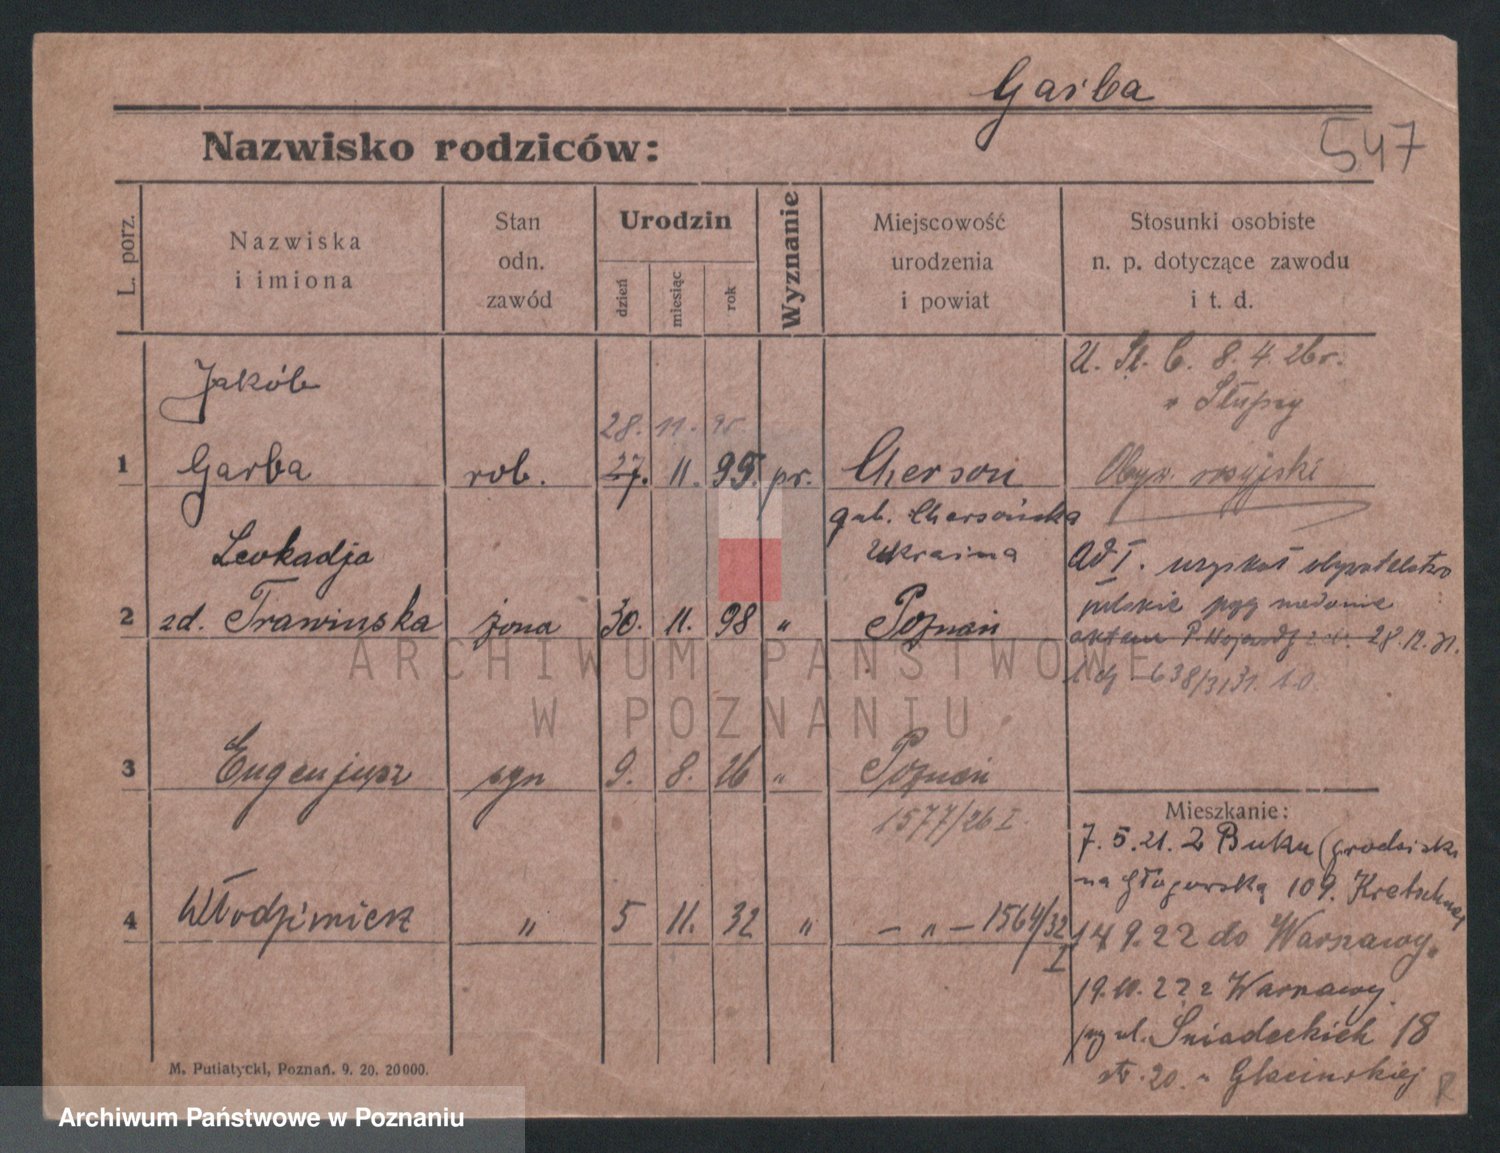 Garba
547
Nazwisko rodziców:
L. porz.
Nazwiska
i imiona
Stan
odn.
zawód
Urodzin
dzień
miesiąc
rok
Wyznanie
Miejscowość
urodzenia
i powiat
Stosunki osobiste
n. p. dotyczące zawodu
i t. d.
U. Sl. C. 8. 4. 26 r.
w Słupcy
Jakób
28. 11. 95.
1 Garba rob. 27. 11. 95. pr. Cherson
Obyw. rosyjski
gub. Chersońska
Ukraina
Leokadja
ad I. uzyskał obywatelstwo
polskie
2 zd. Trawinska żona 30. 11. 98 " Poznań
28.12.31.
638/31
3 Eugenjusz syn 9. 8. 26 " Poznań
1577/26 I
4 Włodzimierz " 5 11. 32 " – " – 1564/32
I
Mieszkanie:
7. 5. 21. z Buku (grodzisk
na Głogowską 109. Kretschmer
14 9. 22 do Warszawy.
19.10.22 z Warszawy.
ul. Śniadeckich 18
str. 20. u Glacinskiej
R
M. Putiatycki, Poznań. 9. 20. 20000.
ARCHIWUM PAŃSTWOWE
W POZNANIU
Archiwum Państwowe w Poznaniu